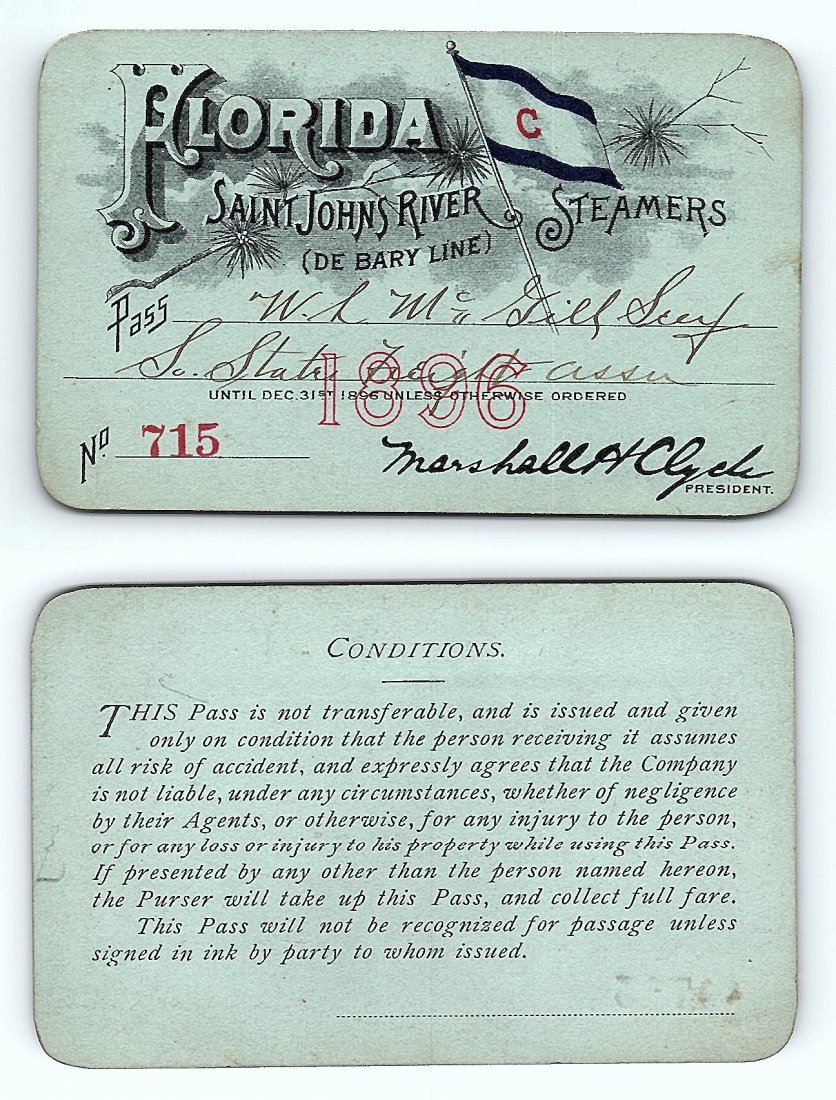 FLORIDA
C
SAINT JOHNS RIVER STEAMERS
(DE BARY LINE)
Pass W. L. McGill Secy
So. State Freight Assn
1896
UNTIL DEC. 31ST 1896 UNLESS OTHERWISE ORDERED
No 715
Marshall H Clyde
PRESIDENT.
CONDITIONS.
THIS Pass is not transferable, and is issued and given
only on condition that the person receiving it assumes
all risk of accident, and expressly agrees that the Company
is not liable, under any circumstances, whether of negligence
by their Agents, or otherwise, for any injury to the person,
or for any loss or injury to his property while using this Pass.
If presented by any other than the person named hereon,
the Purser will take up this Pass, and collect full fare.
This Pass will not be recognized for passage unless
signed in ink by party to whom issued.